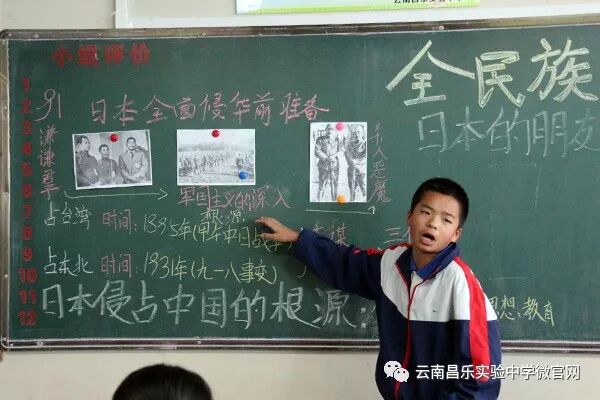 云南昌乐实验中学
小组评价
全民族
1
2
3
4
5
6
7
8
9
10
11
12
日本全面侵华前准备
日本的朋友
谦谦君子
杀人恶魔
军国主义的深入
根源
占台湾 时间：1895年(甲午中日战争)
占东北 时间：1931年(九一八事变)
日本侵占中国的根源：
思想：教育
云南昌乐实验中学微官网